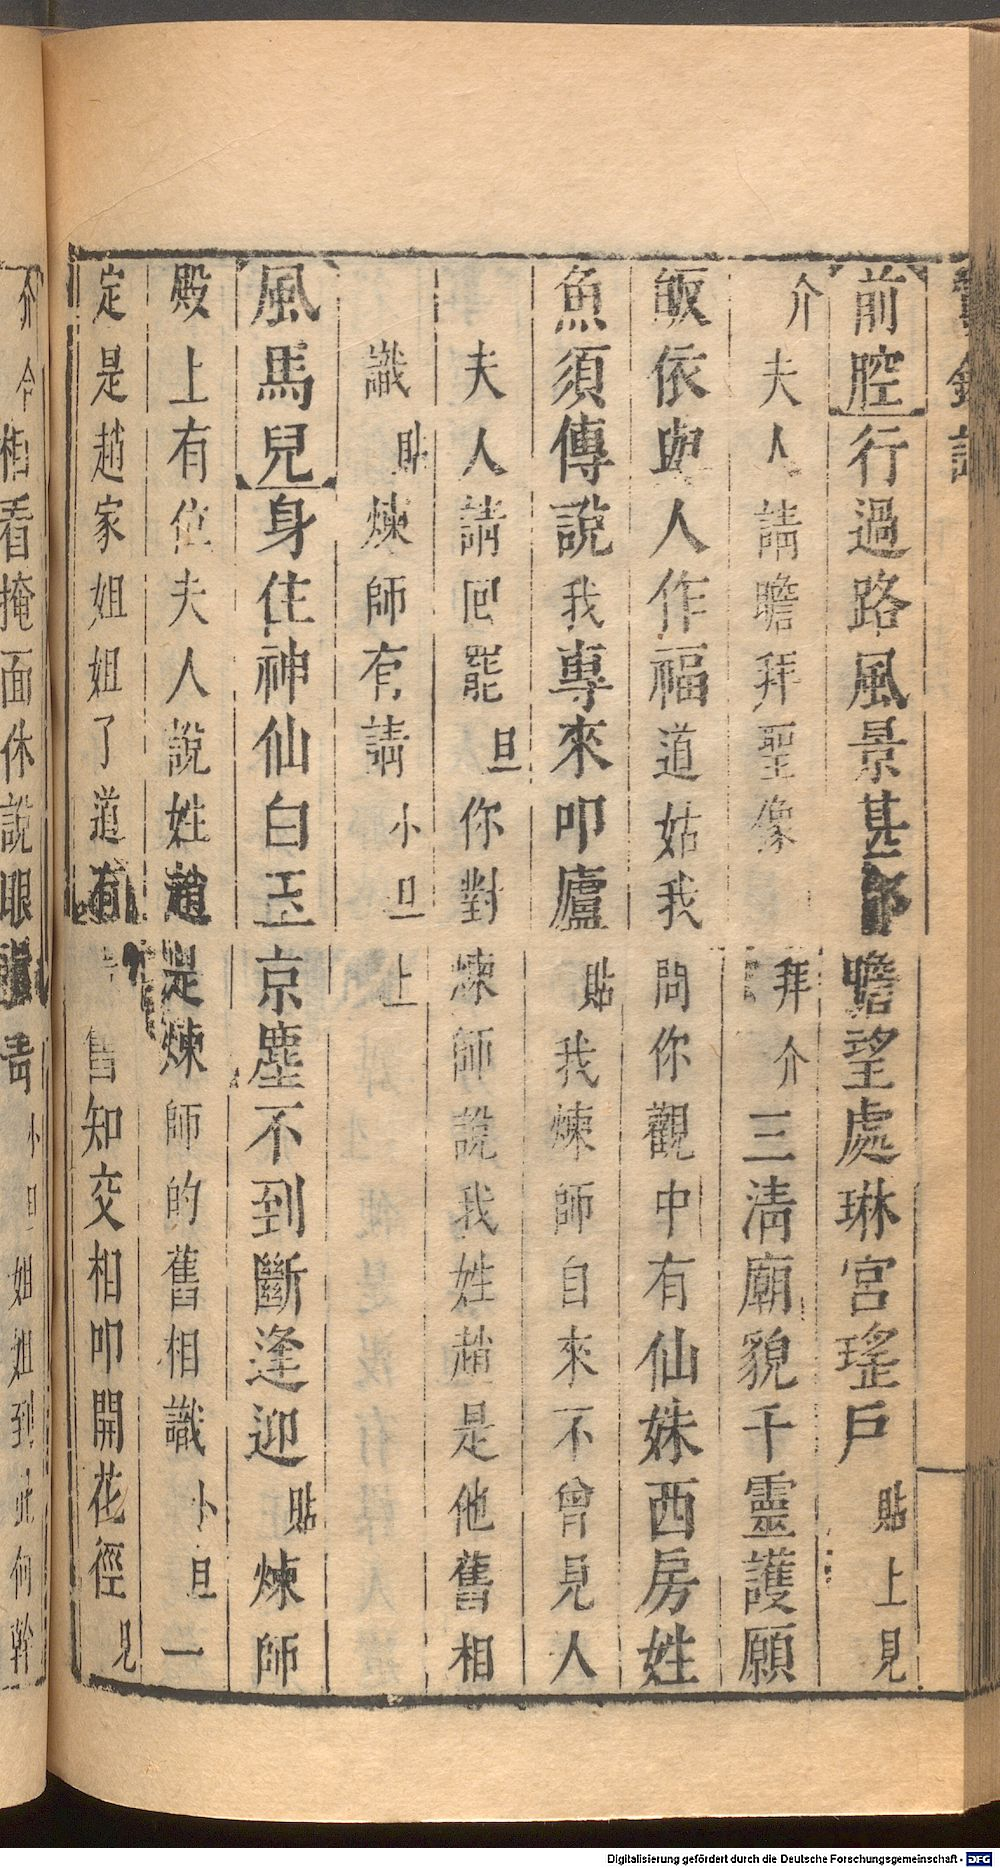 前腔行過路風景甚 瞻望處琳宮瑤戶貼上見
介夫人請瞻拜聖像 拜介三清廟貌千靈護願
皈依與人作福道姑我問你觀中有仙姝西房姓
魚須傳說我專來叩廬貼我煉師自來不曾見人
夫人請回罷旦你對煉師說我姓趙是他舊相
識貼煉師有請小旦上
風馬兒身住神仙白玉京塵不到斷逢迎貼煉師
殿上有位夫人說姓趙是煉師的舊相識小旦一
定是趙家姐姐了道有 舊知交相叩開花徑見
介 相看掩面休說眼 青小旦姐姐到此何幹
Digitalisierung gefördert durch die Deutsche Forschungsgemeinschaft - DFG